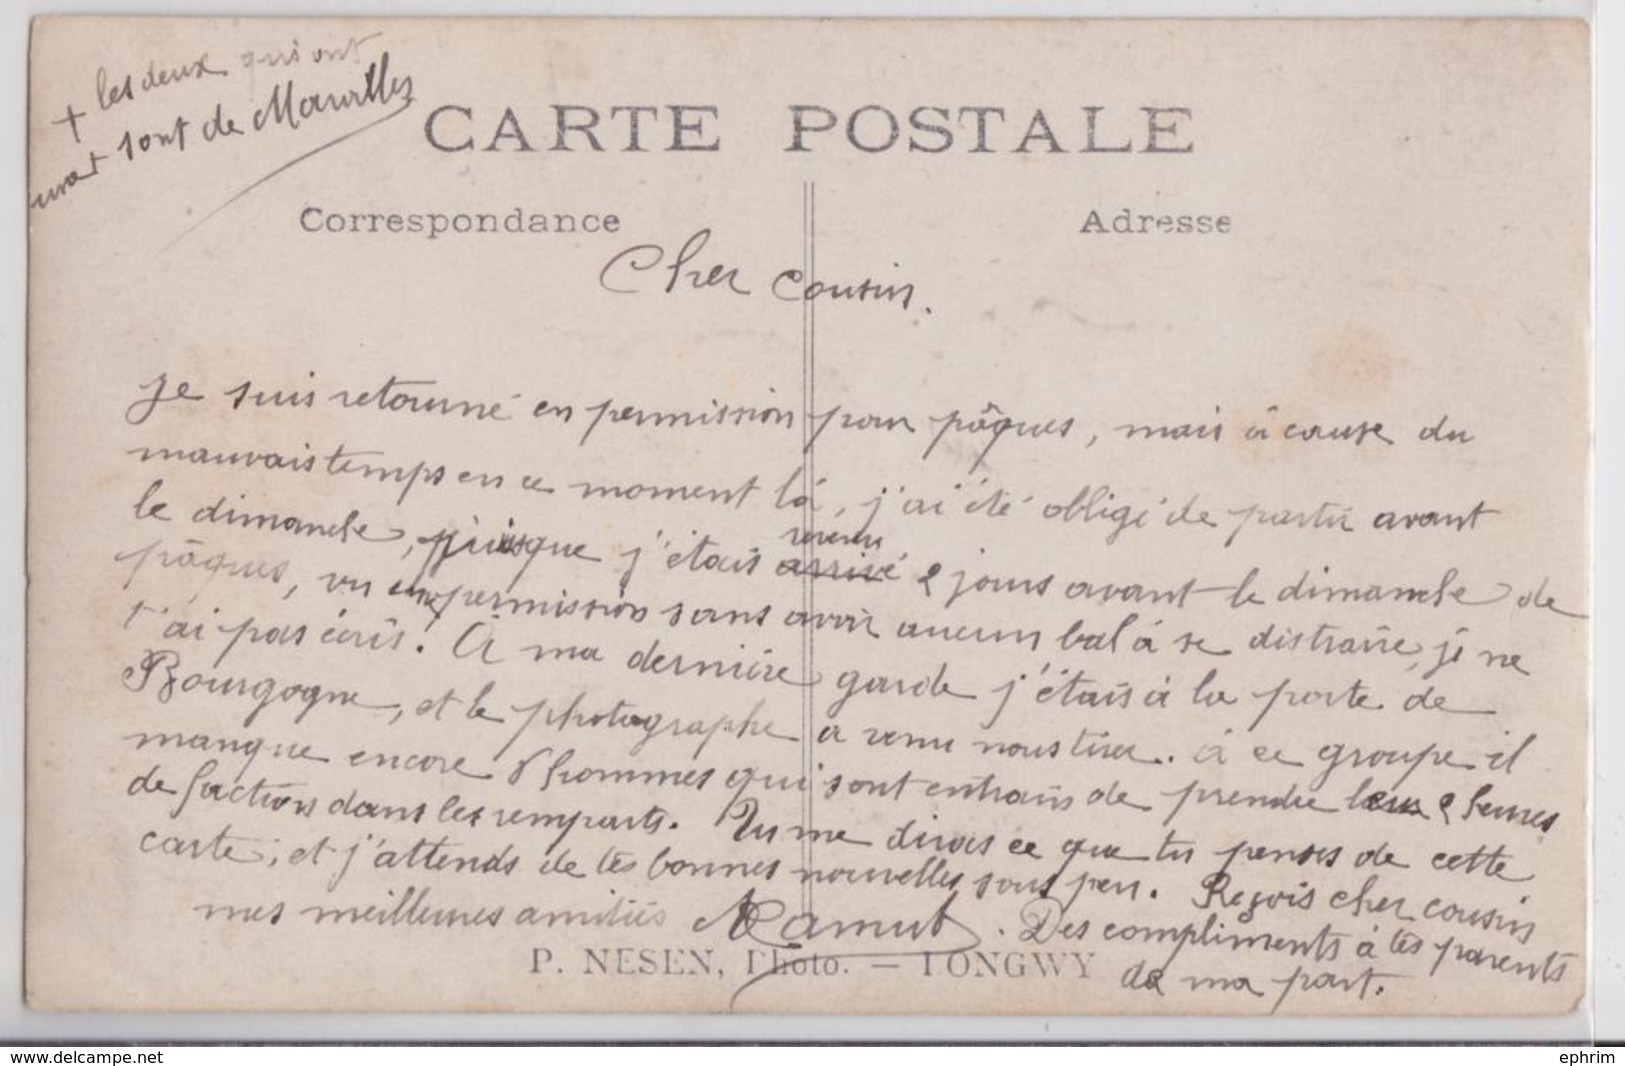 + les deux qui ont
sont de
CARTE POSTALE
Correspondance
Adresse
Cher cousin.
Je suis retourné en permission pour pâques, mais à cause du
mauvais temps en ce moment là, j'ai été obligé de partir avant
le dimanche, puisque j'étais arrivé revenu 2 jours avant le dimanche de
pâques, vu permission sans avoir aucun bal à se distraire, je ne
t'ai pas écris. À ma dernière garde j'étais à la porte de
Bourgogne, et le photographe a venu nous tirer. à ce groupe il
manque encore 8 hommes qui sont entrain de prendre leur 2 heures
de faction dans les remparts. Tu me diras ce que tu penses de cette
carte, et j'attends de tes bonnes nouvelles sous peu. Reçois cher cousin
mes meilleures amitiés Camut. Des compliments à tes parents
de ma part.
P. NESEN, Photo. — LONGWY
www.delcampe.net
ephrim